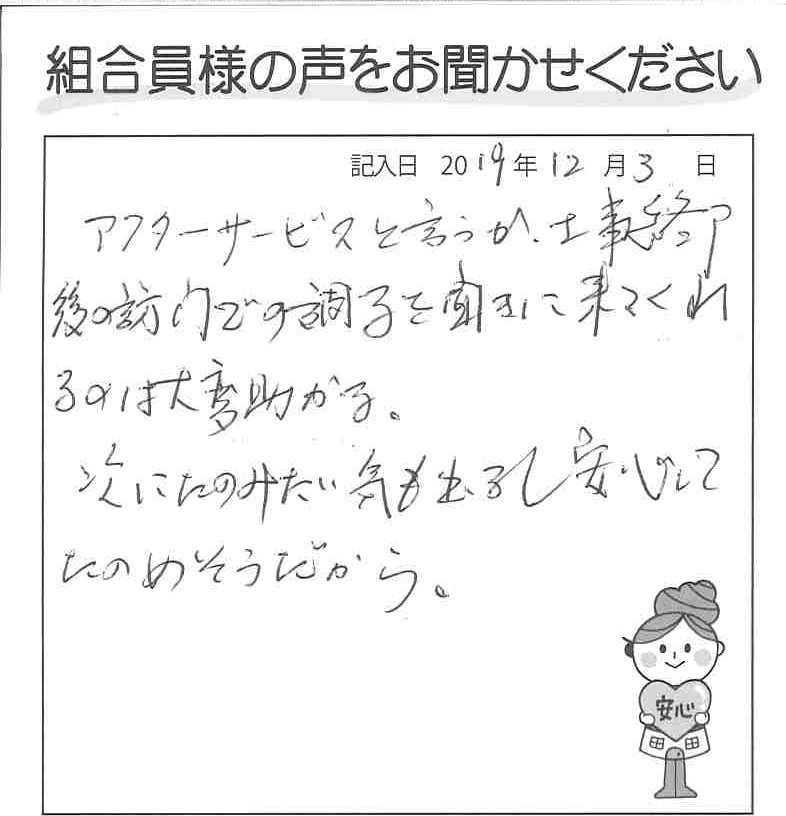 組合員様の声をお聞かせください
記入日 2019年12月3日
アフターサービスと言うか、工事終了
後の訪門での調子を聞きに来てくれ
るのは大変助かる。
次にたのみたい気も出るし安心して
たのめそうだから。
安心